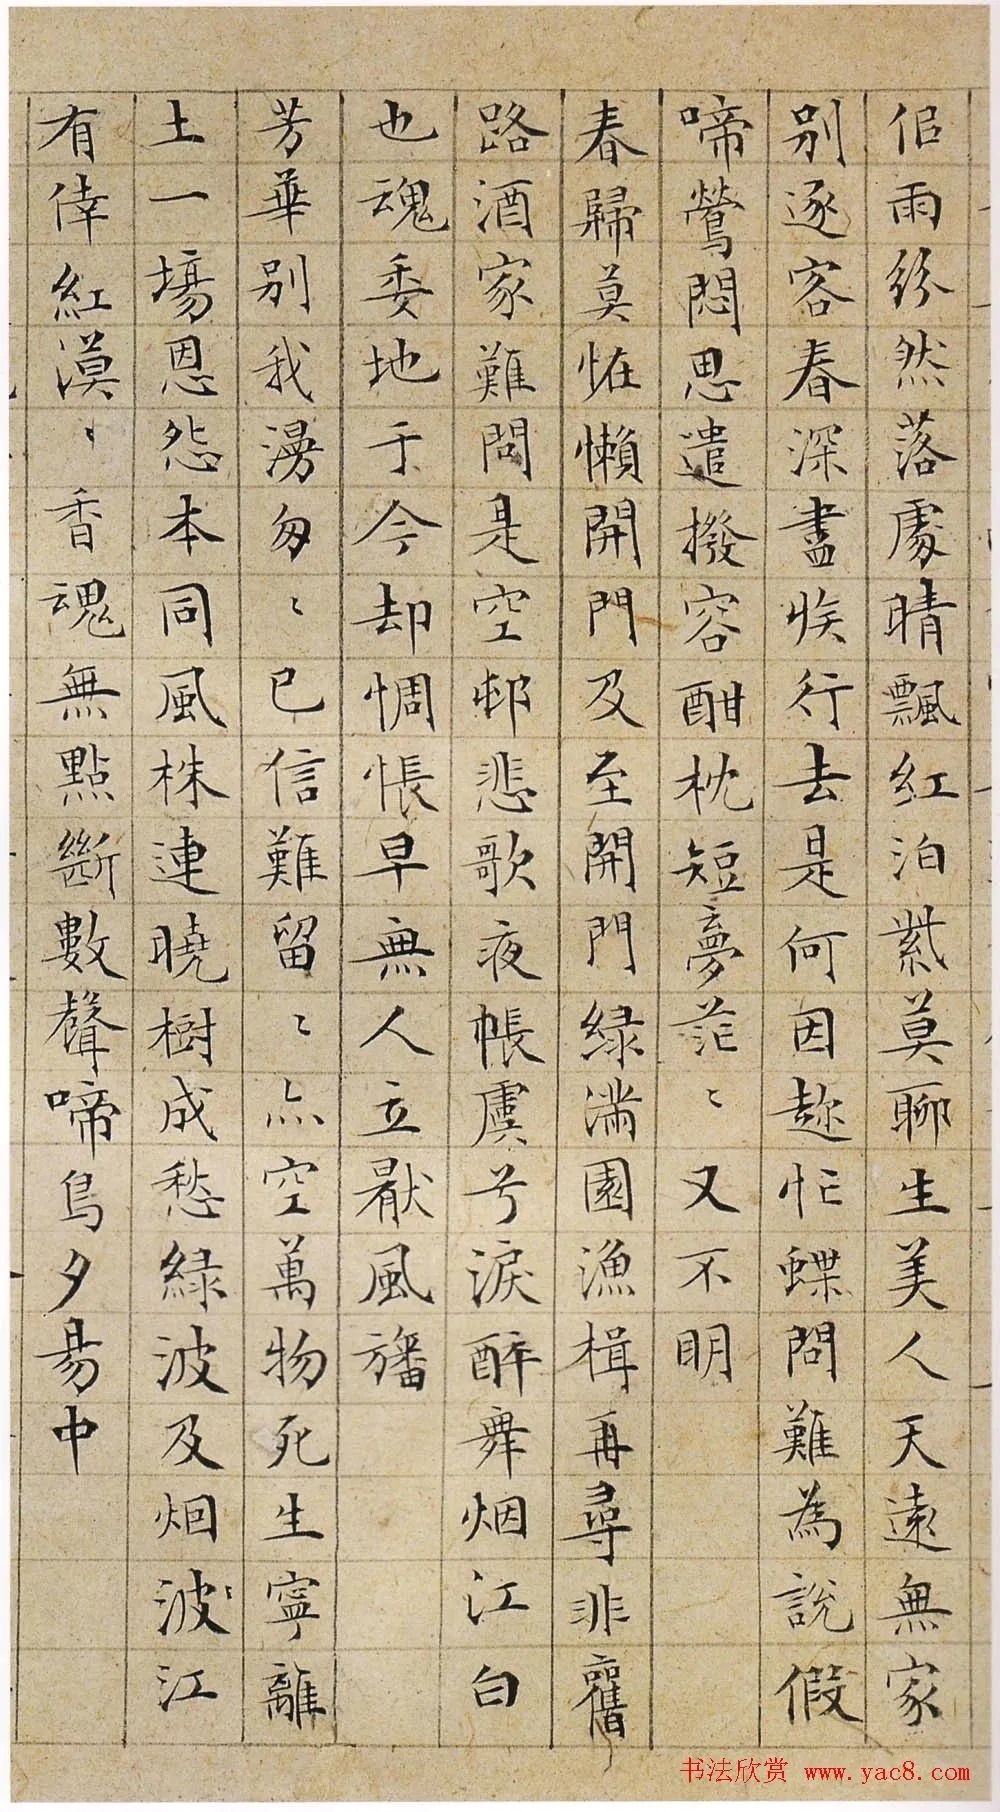 佀雨紛然落處晴飄紅泊紫莫聊生美人天遠無家
別逐客春深盡族行去是何因趂忙蝶問難為說假
啼鶯悶思遣撥容酣枕短夢茫〻又不明
春歸莫恠懶開門及至開門綠滿園漁楫再尋非舊
路酒家難問是空邨悲歌夜帳虞兮淚醉舞烟江白
也魂委地于今却惆悵早無人立厭風旛
芳華別我漫匆〻已信難留〻亦空萬物死生寧離
土一場恩怨本同風株連曉樹成愁綠波及烟波江
有倖紅漠〻香魂無點斷數聲啼鳥夕昜中
书法欣赏 www.yac8.com